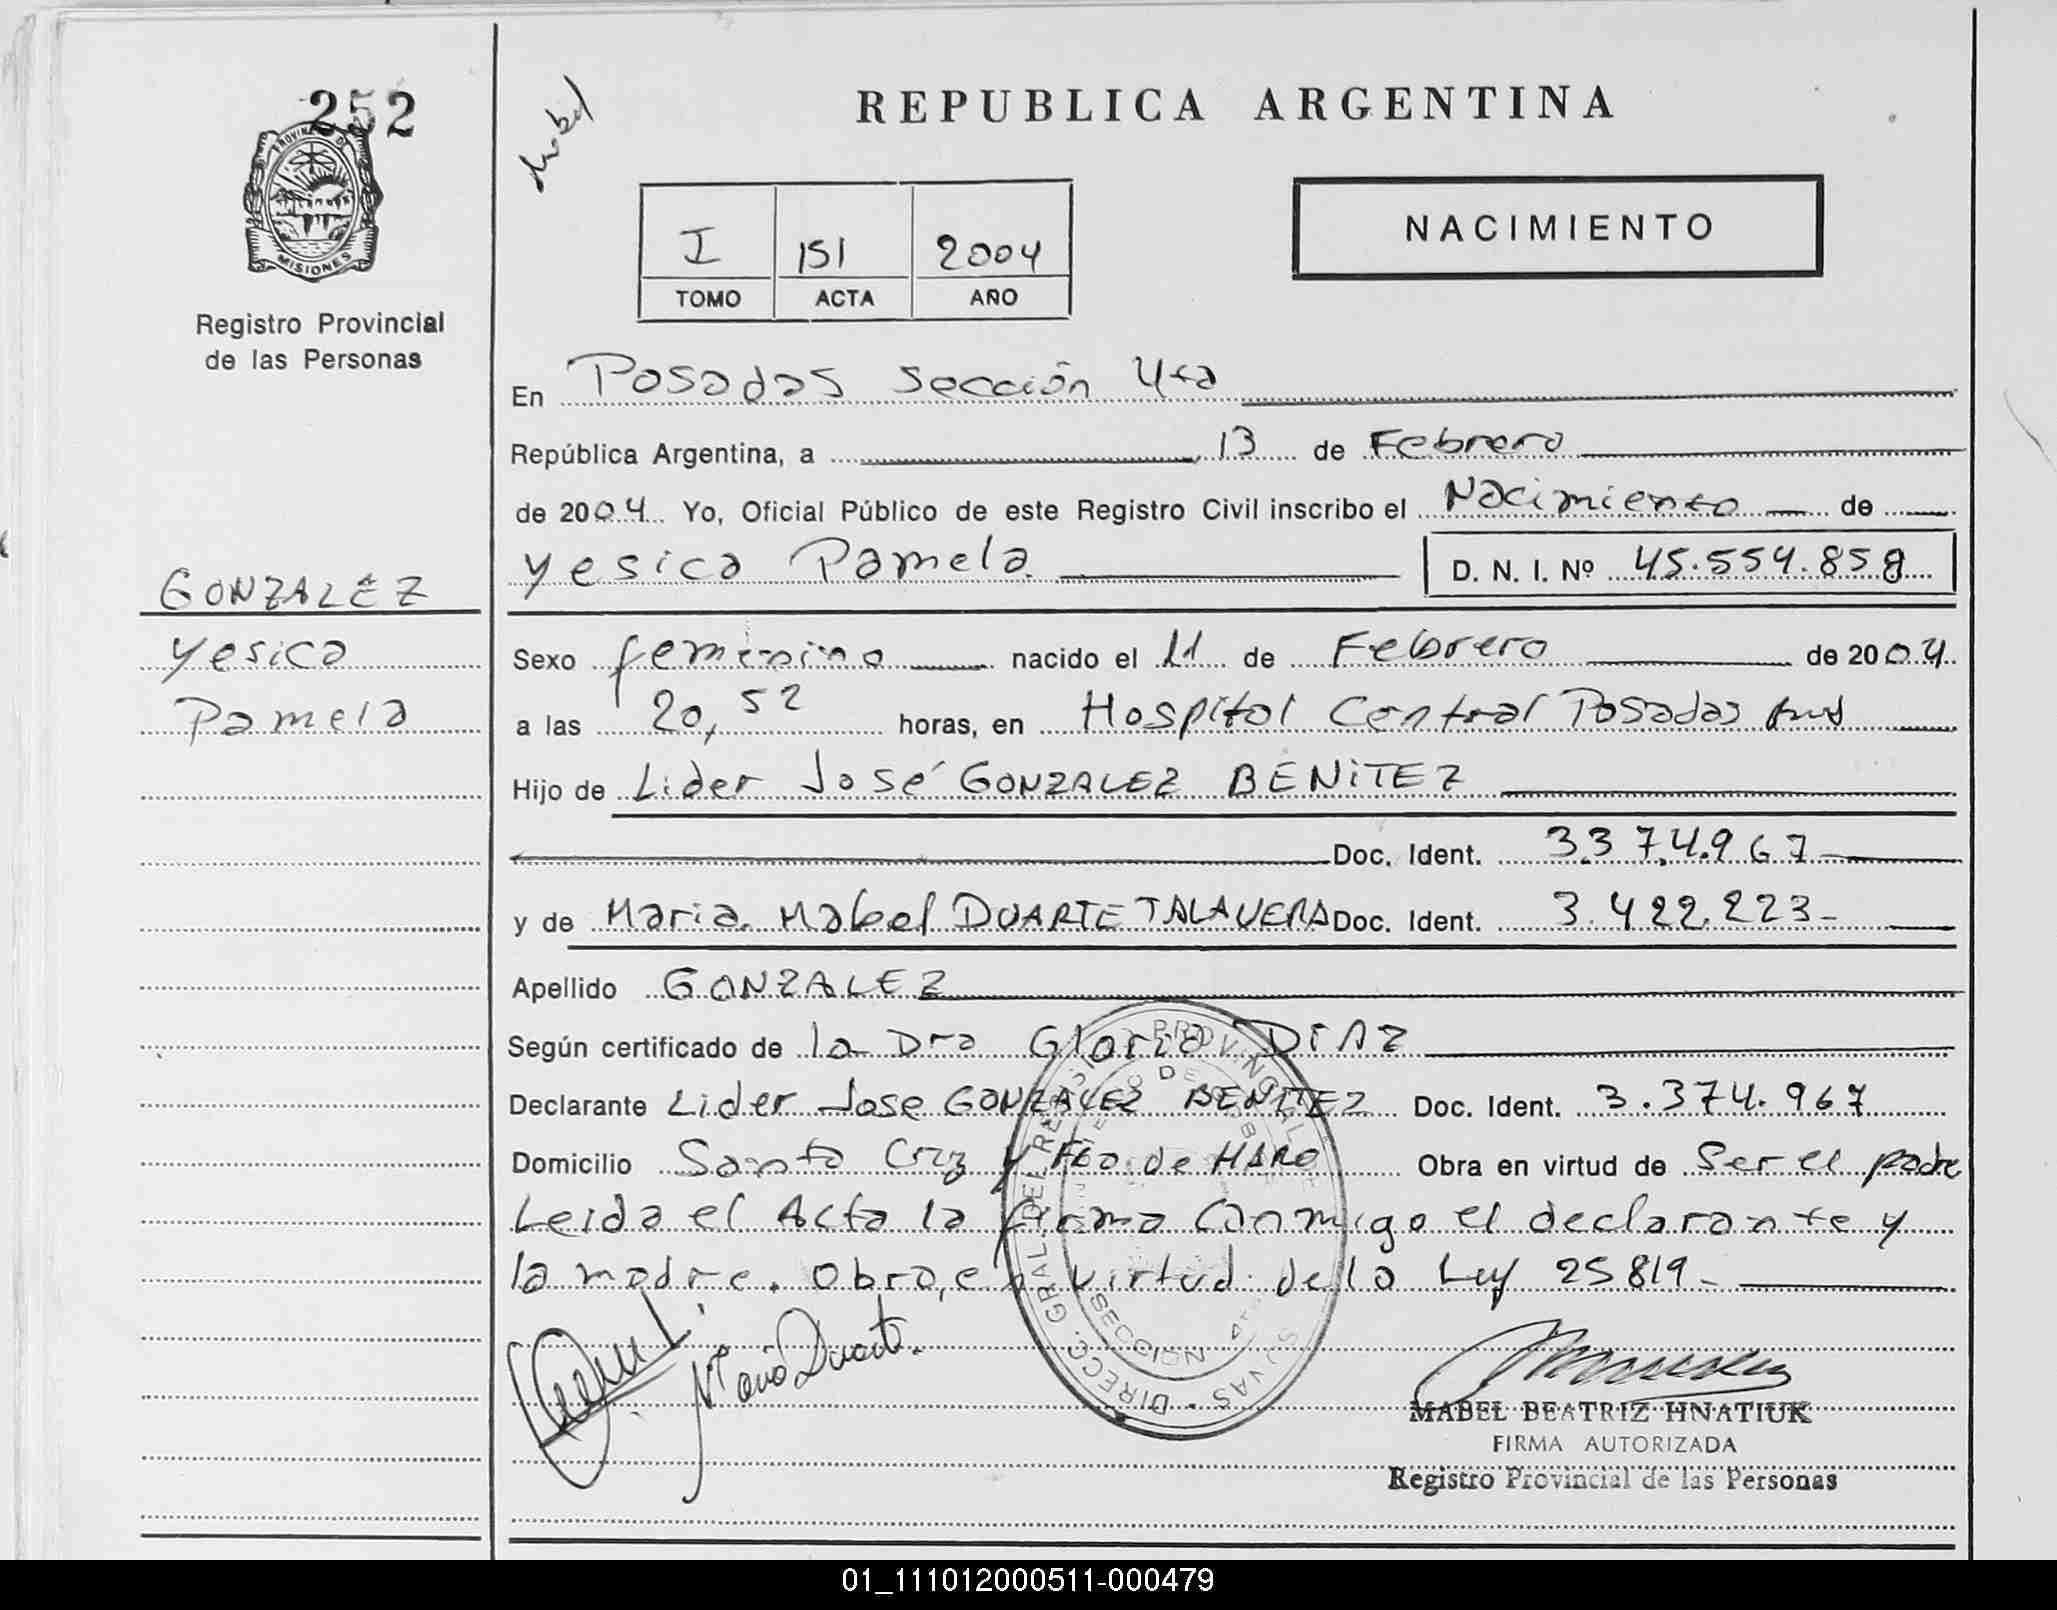 252
PROVINCIA DE
MISIONES
Registro Provincial
de las Personas
GONZALEZ
Yesica
Pamela
Mabel
REPUBLICA ARGENTINA
I 151 2004
TOMO ACTA AÑO
NACIMIENTO
En Posadas Sección 4ta
República Argentina, a 13 de Febrero
de 2004 Yo, Oficial Público de este Registro Civil inscribo el Nacimiento de
Yesica Pamela D. N. I. Nº 45.554.858
Sexo femenino nacido el 11 de Febrero de 2004
a las 20,52 horas, en Hospital Central Posadas
Hijo de Lider José GONZALEZ BENITEZ
Doc. Ident. 3.374.967
y de Maria Mabel DUARTE TALAVERA Doc. Ident. 3.422.223-
Apellido GONZALEZ
Según certificado de la Dra Gloria DIAZ
Declarante Lider Jose GONZALEZ BENITEZ Doc. Ident. 3.374.967
Domicilio Santa Cruz y Fco. de HARO Obra en virtud de Ser el padre
Leida el Acta la firma Conmigo el declarante y
la madre. Obra, en virtud de la Ley 25819-
Maria Duarte.
DIRECC. GRAL. DEL REGISTRO PROVINCIAL DE LAS
SECCION 4ta
MABEL BEATRIZ HNATIUK
FIRMA AUTORIZADA
Registro Provincial de las Personas
01_111012000511-000479